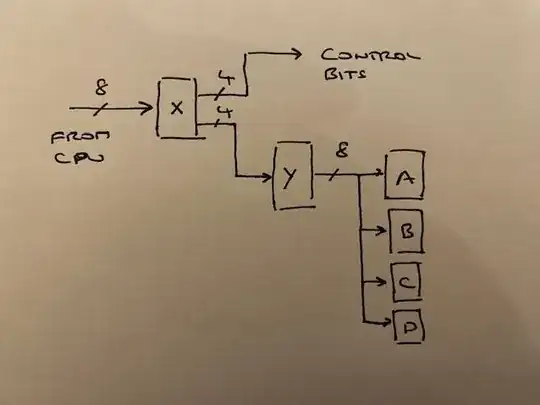 8
FROM
CPU
X
4
4
CONTROL
BITS
Y
8
A
B
C
D